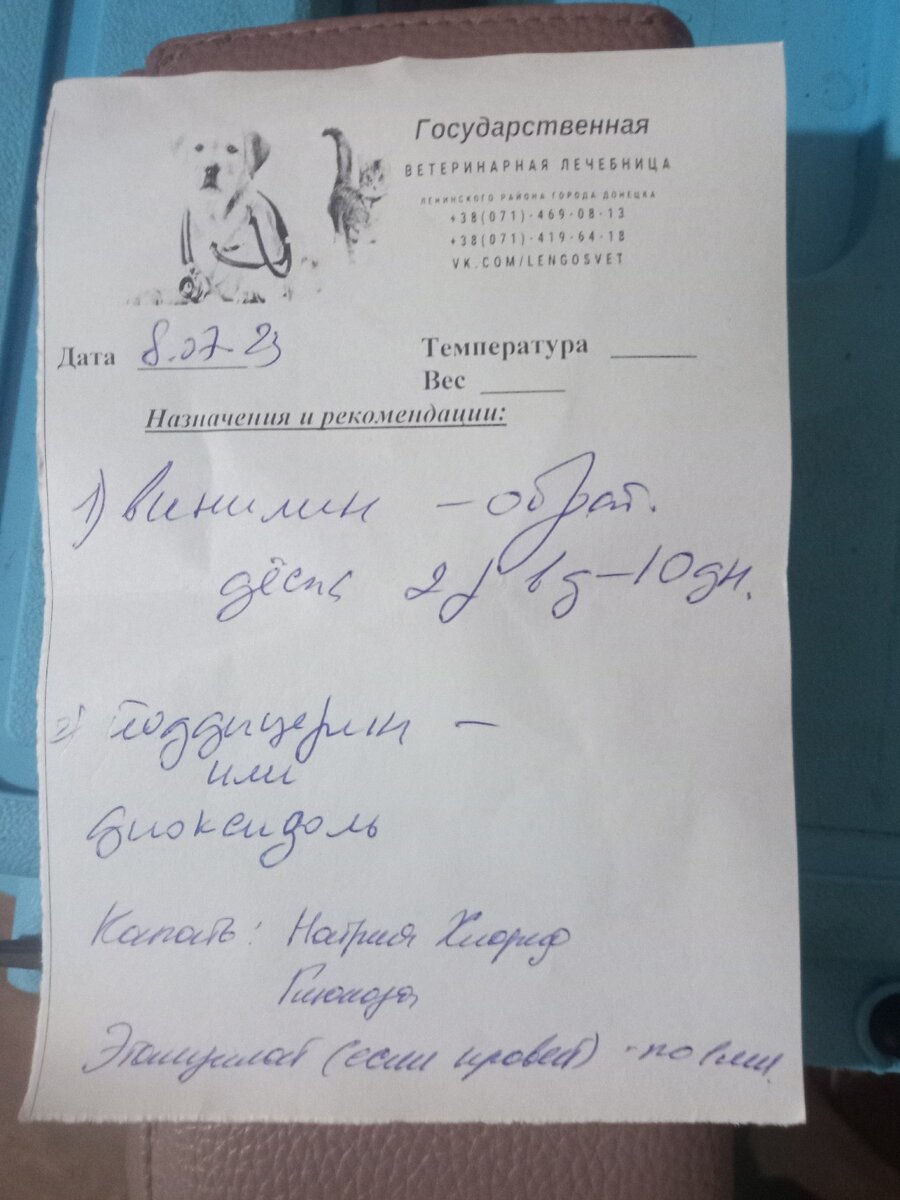 Государственная
ВЕТЕРИНАРНАЯ ЛЕЧЕБНИЦА
ЛЕНИНСКОГО РАЙОНА ГОРОДА ДОНЕЦКА
+38(071)-469-08-13
+38(071)-419-64-18
VK.COM/LENGOSVET
Дата 8.07.23 Температура
Вес
Назначения и рекомендации:
1) винилин – обраб.
дёсна 2 р в д – 10 дн.
2) йоддицерин –
или
диоксидоль
Капать: Натрия Хлорид
Глюкоза
Этамзилат (если кровет) - по 1 мл